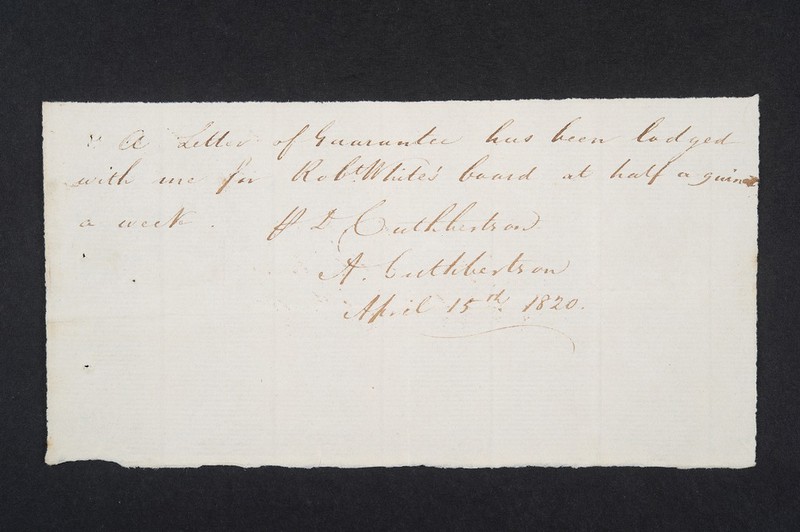 A Letter of Guarantee has been lodged
with me for Robt. White's board at half a guinea
a week. D Cuthbertson
A. Cuthbertson
April 15th 1820.